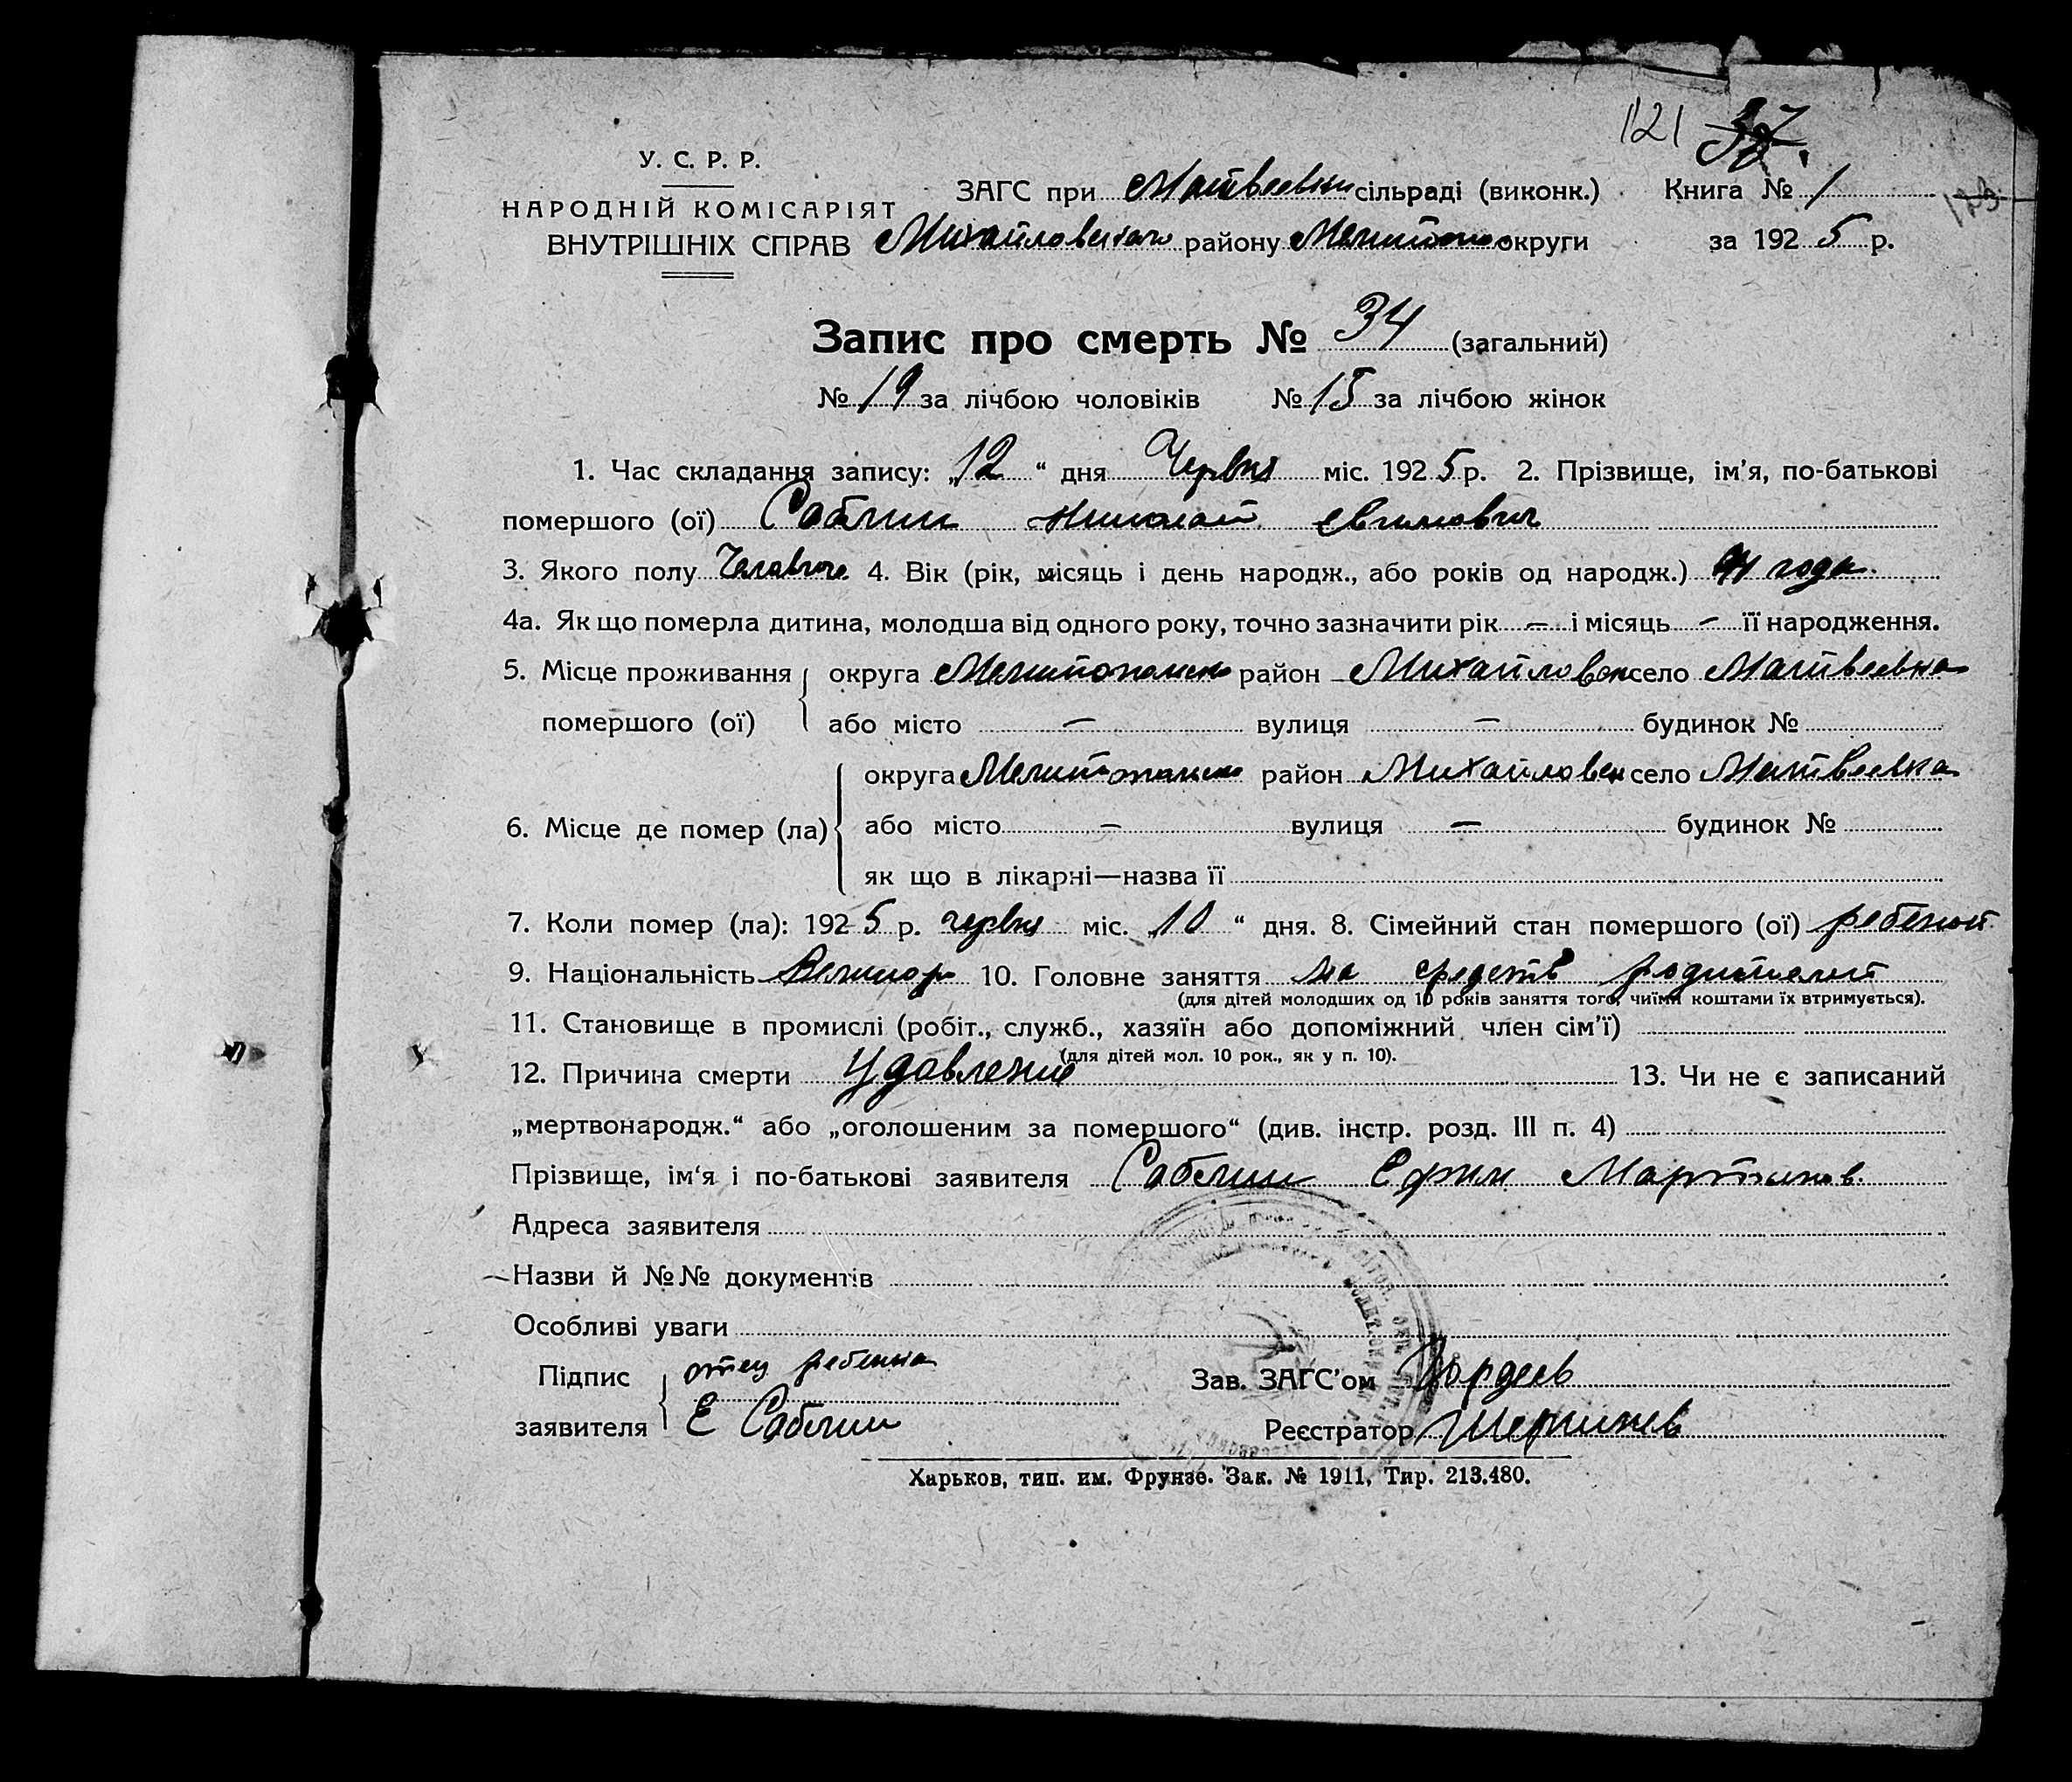 121 37.
У. С. Р. Р.
НАРОДНІЙ КОМІСАРІЯТ
ВНУТРІШНІХ СПРАВ
ЗАГС при Матвеевки сільраді (виконк.) Книга № 1
123
Михайловского району округи за 192 5 р.
Запис про смерть № 34 (загальний)
№ 19 за лічбою чоловіків № 15 за лічбою жінок
1. Час складання запису: „12“ дня Червня міс. 192 5 р. 2. Прізвище, ім’я, по-батькові
помершого (ої) Саблин Николай Евгимович
3. Якого полу 4. Вік (рік, місяць і день народж., або років од народж.) года.
4а. Як що померла дитина, молодша від одного року, точно зазначити рік — і місяць — її народження.
5. Місце проживання округа район Михайловск село Матвеевка
помершого (ої) або місто — вулиця — будинок №
округа район Михайловск село Матвеевка
6. Місце де помер (ла) або місто — вулиця — будинок №
як що в лікарні—назва її
7. Коли помер (ла): 192 5 р. червня міс. „10“ дня. 8. Сімейний стан помершого (ої) ребенок
9. Національність Великор 10. Головне заняття на средств родителей
(для дітей молодших од 10 років заняття того, чиїми коштами їх втримується).
11. Становище в промислі (робіт., служб., хазяїн або допоміжний член сім’ї)
(для дітей мол. 10 рок., як у п. 10).
12. Причина смерти Удавление 13. Чи не є записаний
„мертвонародж.“ або „оголошеним за помершого“ (див. інстр. розд. III п. 4)
Прізвище, ім‘я і по-батькові заявителя Саблин Ефим Мартынов.
Адреса заявителя
Назви й №№ документів
Особливі уваги
Підпис отец ребенка
заявителя Е Саблин
Зав. ЗАГС’ом Гордеев
Реєстратор
Харьков, тип. им. Фрунзе. Зак. № 1911, Тир. 213.480.